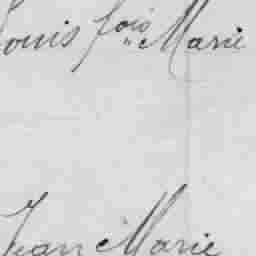 Louis fois Marie
Jean Marie